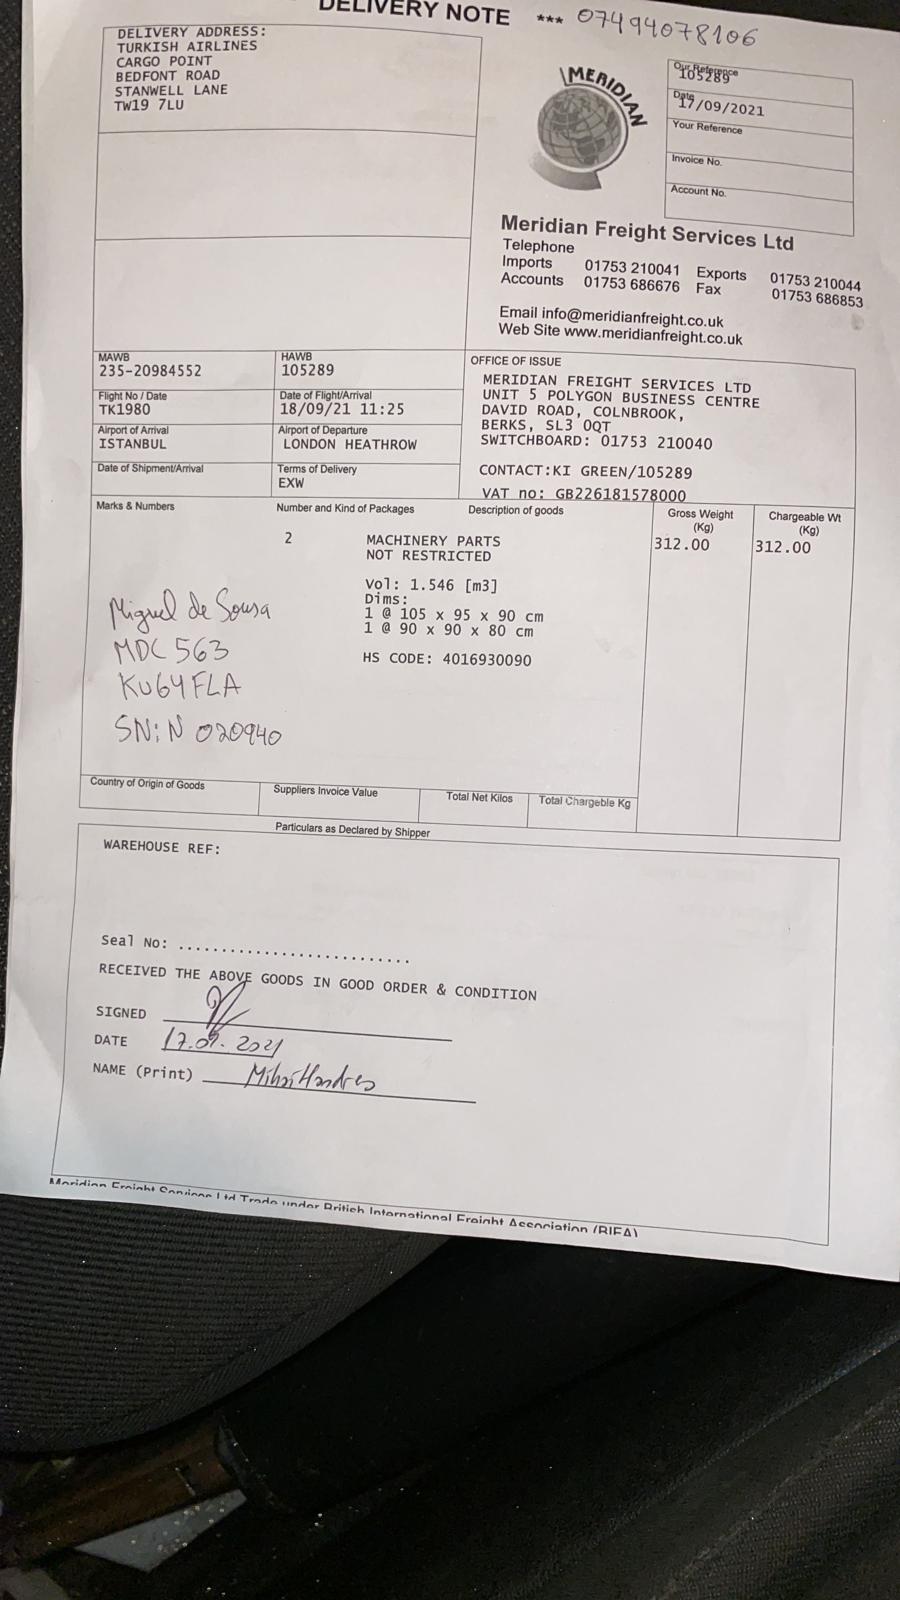 DELIVERY NOTE *** 07494078106
DELIVERY ADDRESS:
TURKISH AIRLINES
CARGO POINT
BEDFONT ROAD
STANWELL LANE
TW19 7LU
MERIDIAN
Our Reference
105289
Date
17/09/2021
Your Reference
Invoice No.
Account No.
Meridian Freight Services Ltd
Telephone
Imports 01753 210041 Exports 01753 210044
Accounts 01753 686676 Fax 01753 686853
Email info@meridianfreight.co.uk
Web Site www.meridianfreight.co.uk
MAWB
235-20984552
HAWB
105289
Flight No / Date
TK1980
Date of Flight/Arrival
18/09/21 11:25
Airport of Arrival
ISTANBUL
Airport of Departure
LONDON HEATHROW
Date of Shipment/Arrival
Terms of Delivery
EXW
OFFICE OF ISSUE
MERIDIAN FREIGHT SERVICES LTD
UNIT 5 POLYGON BUSINESS CENTRE
DAVID ROAD, COLNBROOK,
BERKS, SL3 0QT
SWITCHBOARD: 01753 210040
CONTACT:KI GREEN/105289
VAT no: GB226181578000
Marks & Numbers
Number and Kind of Packages
Description of goods
Gross Weight
(Kg)
Chargeable Wt
(Kg)
2
MACHINERY PARTS
NOT RESTRICTED
312.00
312.00
Vol: 1.546 [m3]
Dims:
1 @ 105 x 95 x 90 cm
1 @ 90 x 90 x 80 cm
HS CODE: 4016930090
Miguel de Sousa
MDC 563
KU64FLA
SN:N 020940
Country of Origin of Goods
Suppliers Invoice Value
Total Net Kilos
Total Chargeble Kg
Particulars as Declared by Shipper
WAREHOUSE REF:
Seal No: ...........................
RECEIVED THE ABOVE GOODS IN GOOD ORDER & CONDITION
SIGNED
DATE 17.09.2021
NAME (Print)
Meridian Freight Services Ltd Trade under British International Freight Association (BIFA)